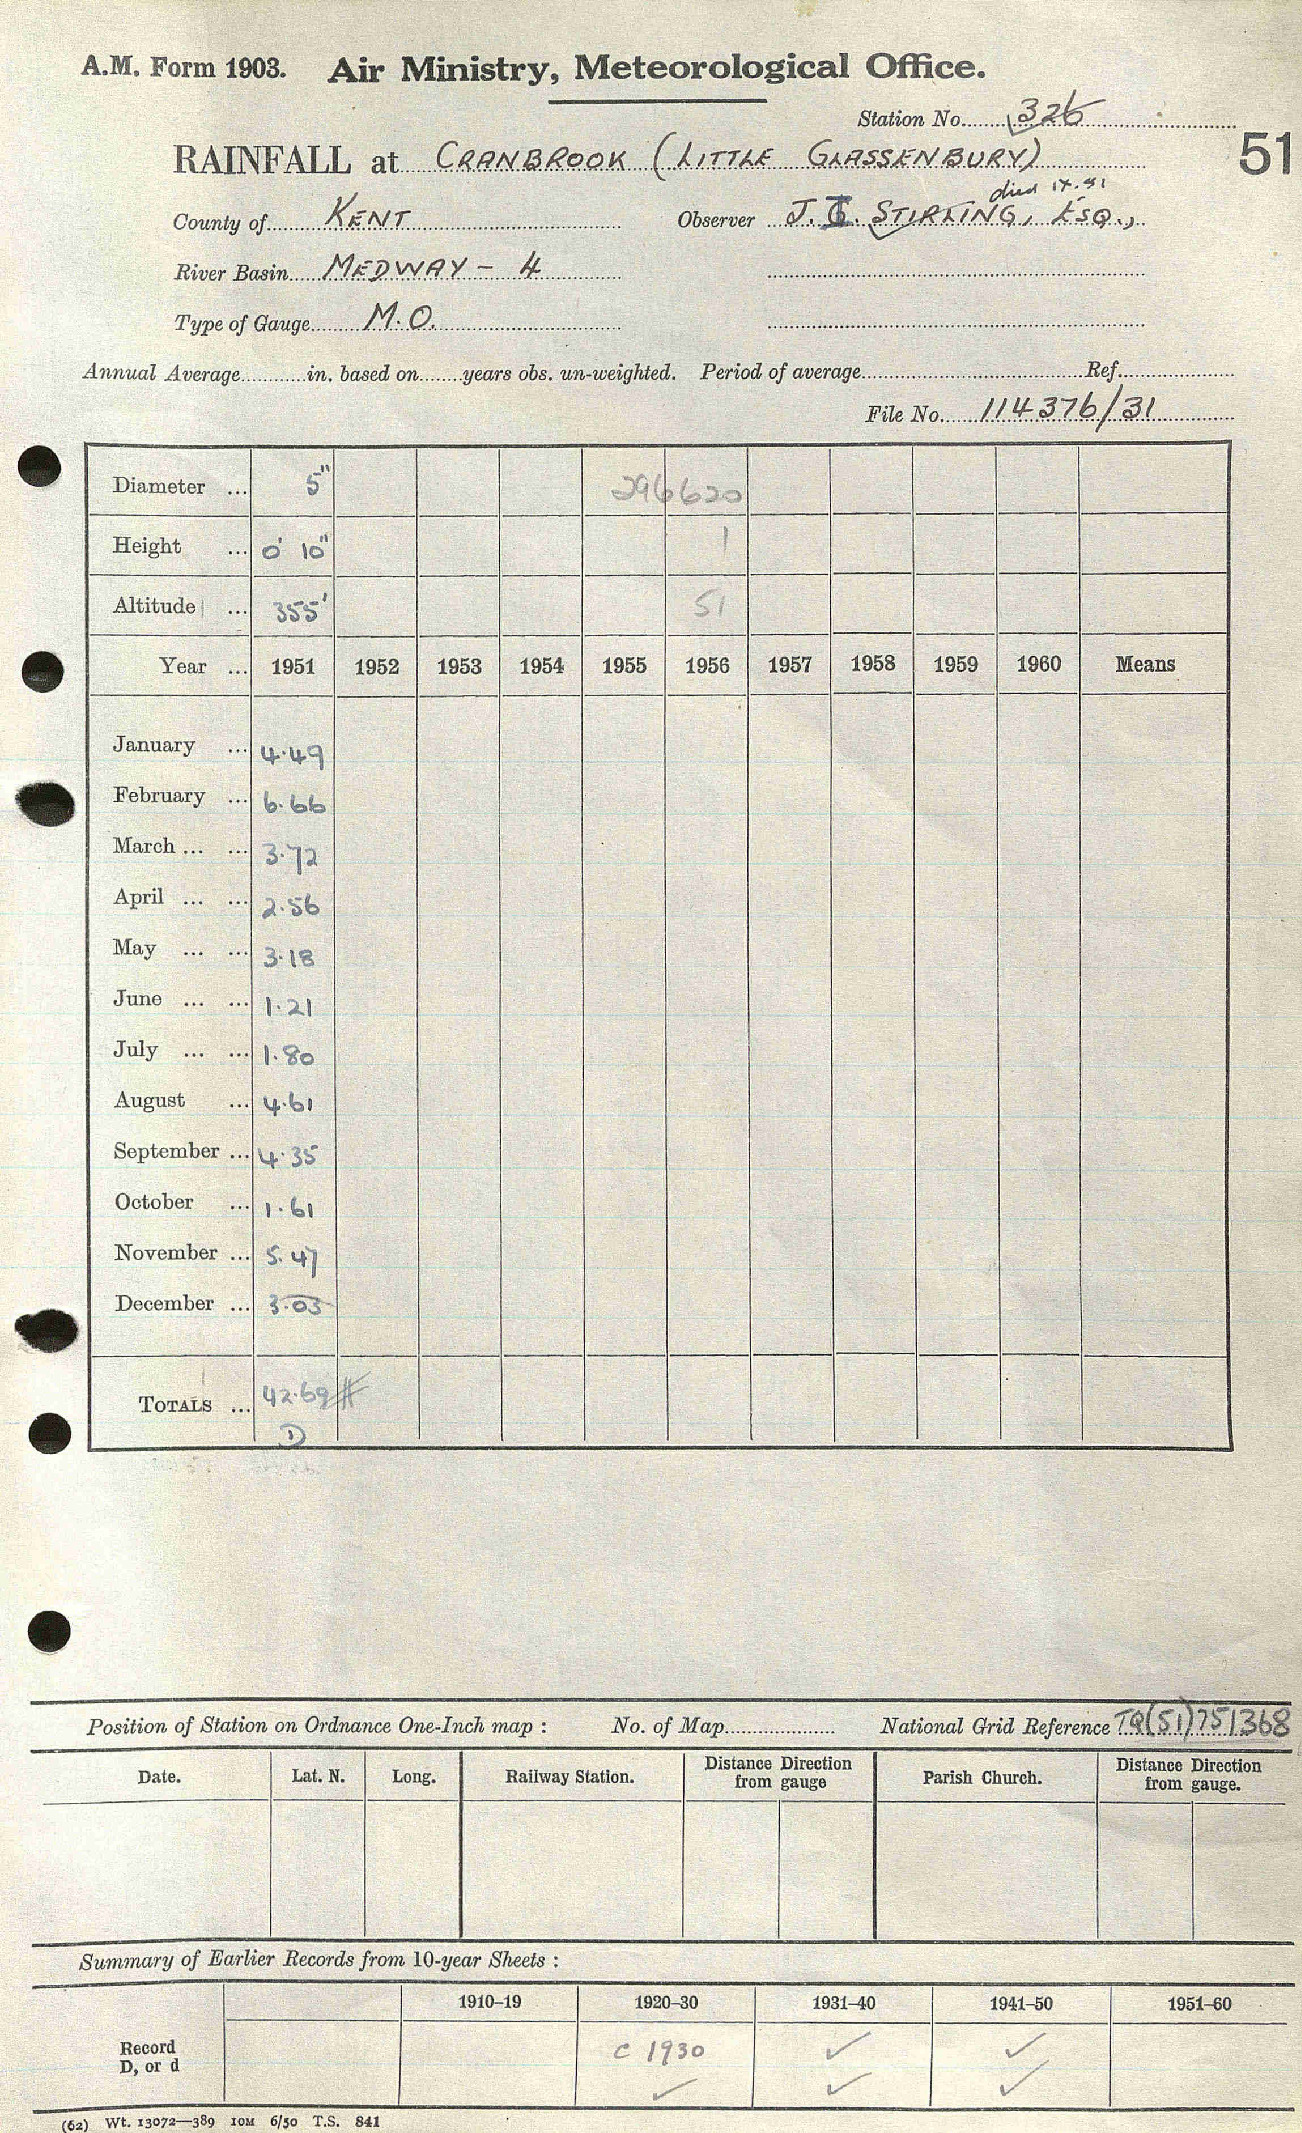 A.M. Form 1903. Air Ministry, Meteorological Office.
Station No. 326
RAINFALL at CRANBROOK (LITTLE GLASSENBURY)
51
died IX.51
County of KENT Observer J. G. STIRLING, ESQ.,
River Basin MEDWAY - 4
Type of Gauge M.O.
Annual Average in. based on years obs. un-weighted. Period of average Ref.
File No. 114376/31
Diameter ... 5" 296620
Height ... 0' 10" 1
Altitude ... 355' 51
Year ... 1951 1952 1953 1954 1955 1956 1957 1958 1959 1960 Means
January ... 4.49
February ... 6.66
March ... ... 3.72
April ... ... 2.56
May ... ... 3.18
June ... ... 1.21
July ... ... 1.80
August ... 4.61
September ... 4.35
October ... 1.61
November ... 5.47
December ... 3.03
TOTALS ... 42.69 #
D
Position of Station on Ordnance One-Inch map : No. of Map National Grid Reference TQ(51)751368
Date. Lat. N. Long. Railway Station. Distance Direction from gauge Parish Church. Distance Direction from gauge.
Summary of Earlier Records from 10-year Sheets :
1910-19 1920-30 1931-40 1941-50 1951-60
Record c 1930 ✓ ✓
D, or d ✓ ✓ ✓
(62) Wt. 13072—389 10M 6/50 T.S. 841